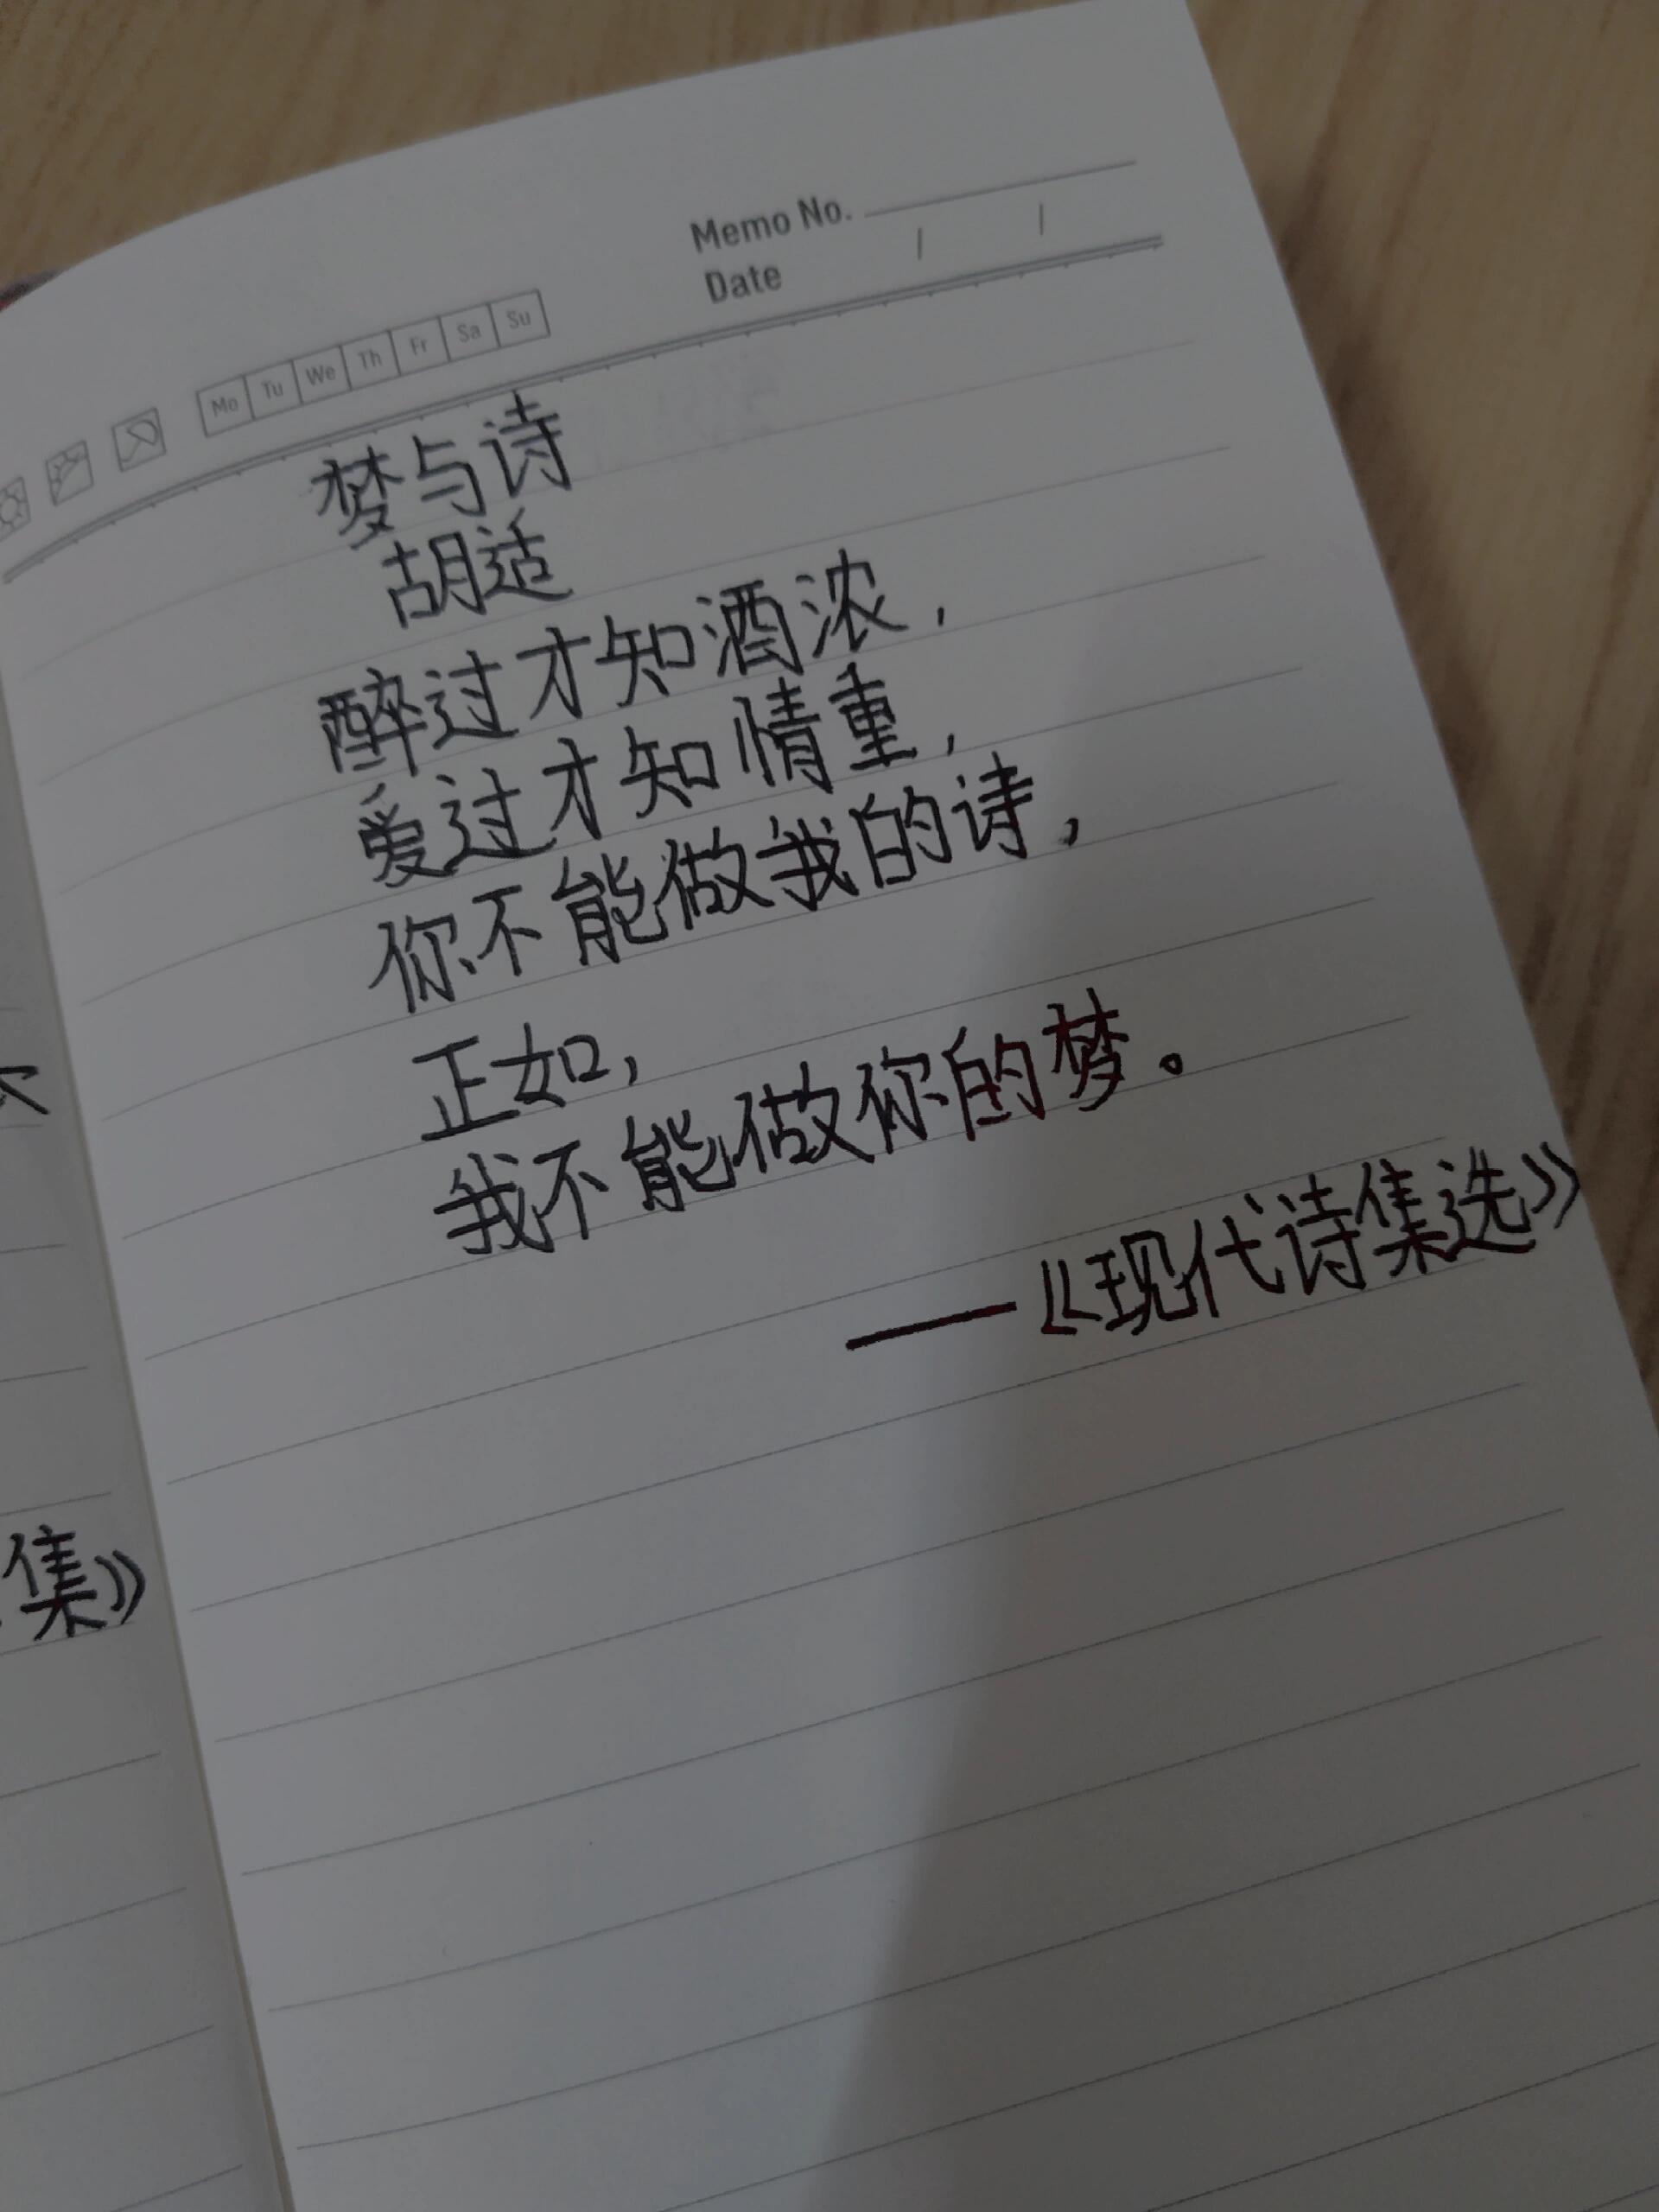 Memo No.
Date / /
Mo Tu We Th Fr Sa Su
梦与诗
胡适
醉过才知酒浓，
爱过才知情重，
你不能做我的诗，
正如，
我不能做你的梦。
——《现代诗集选》
集》